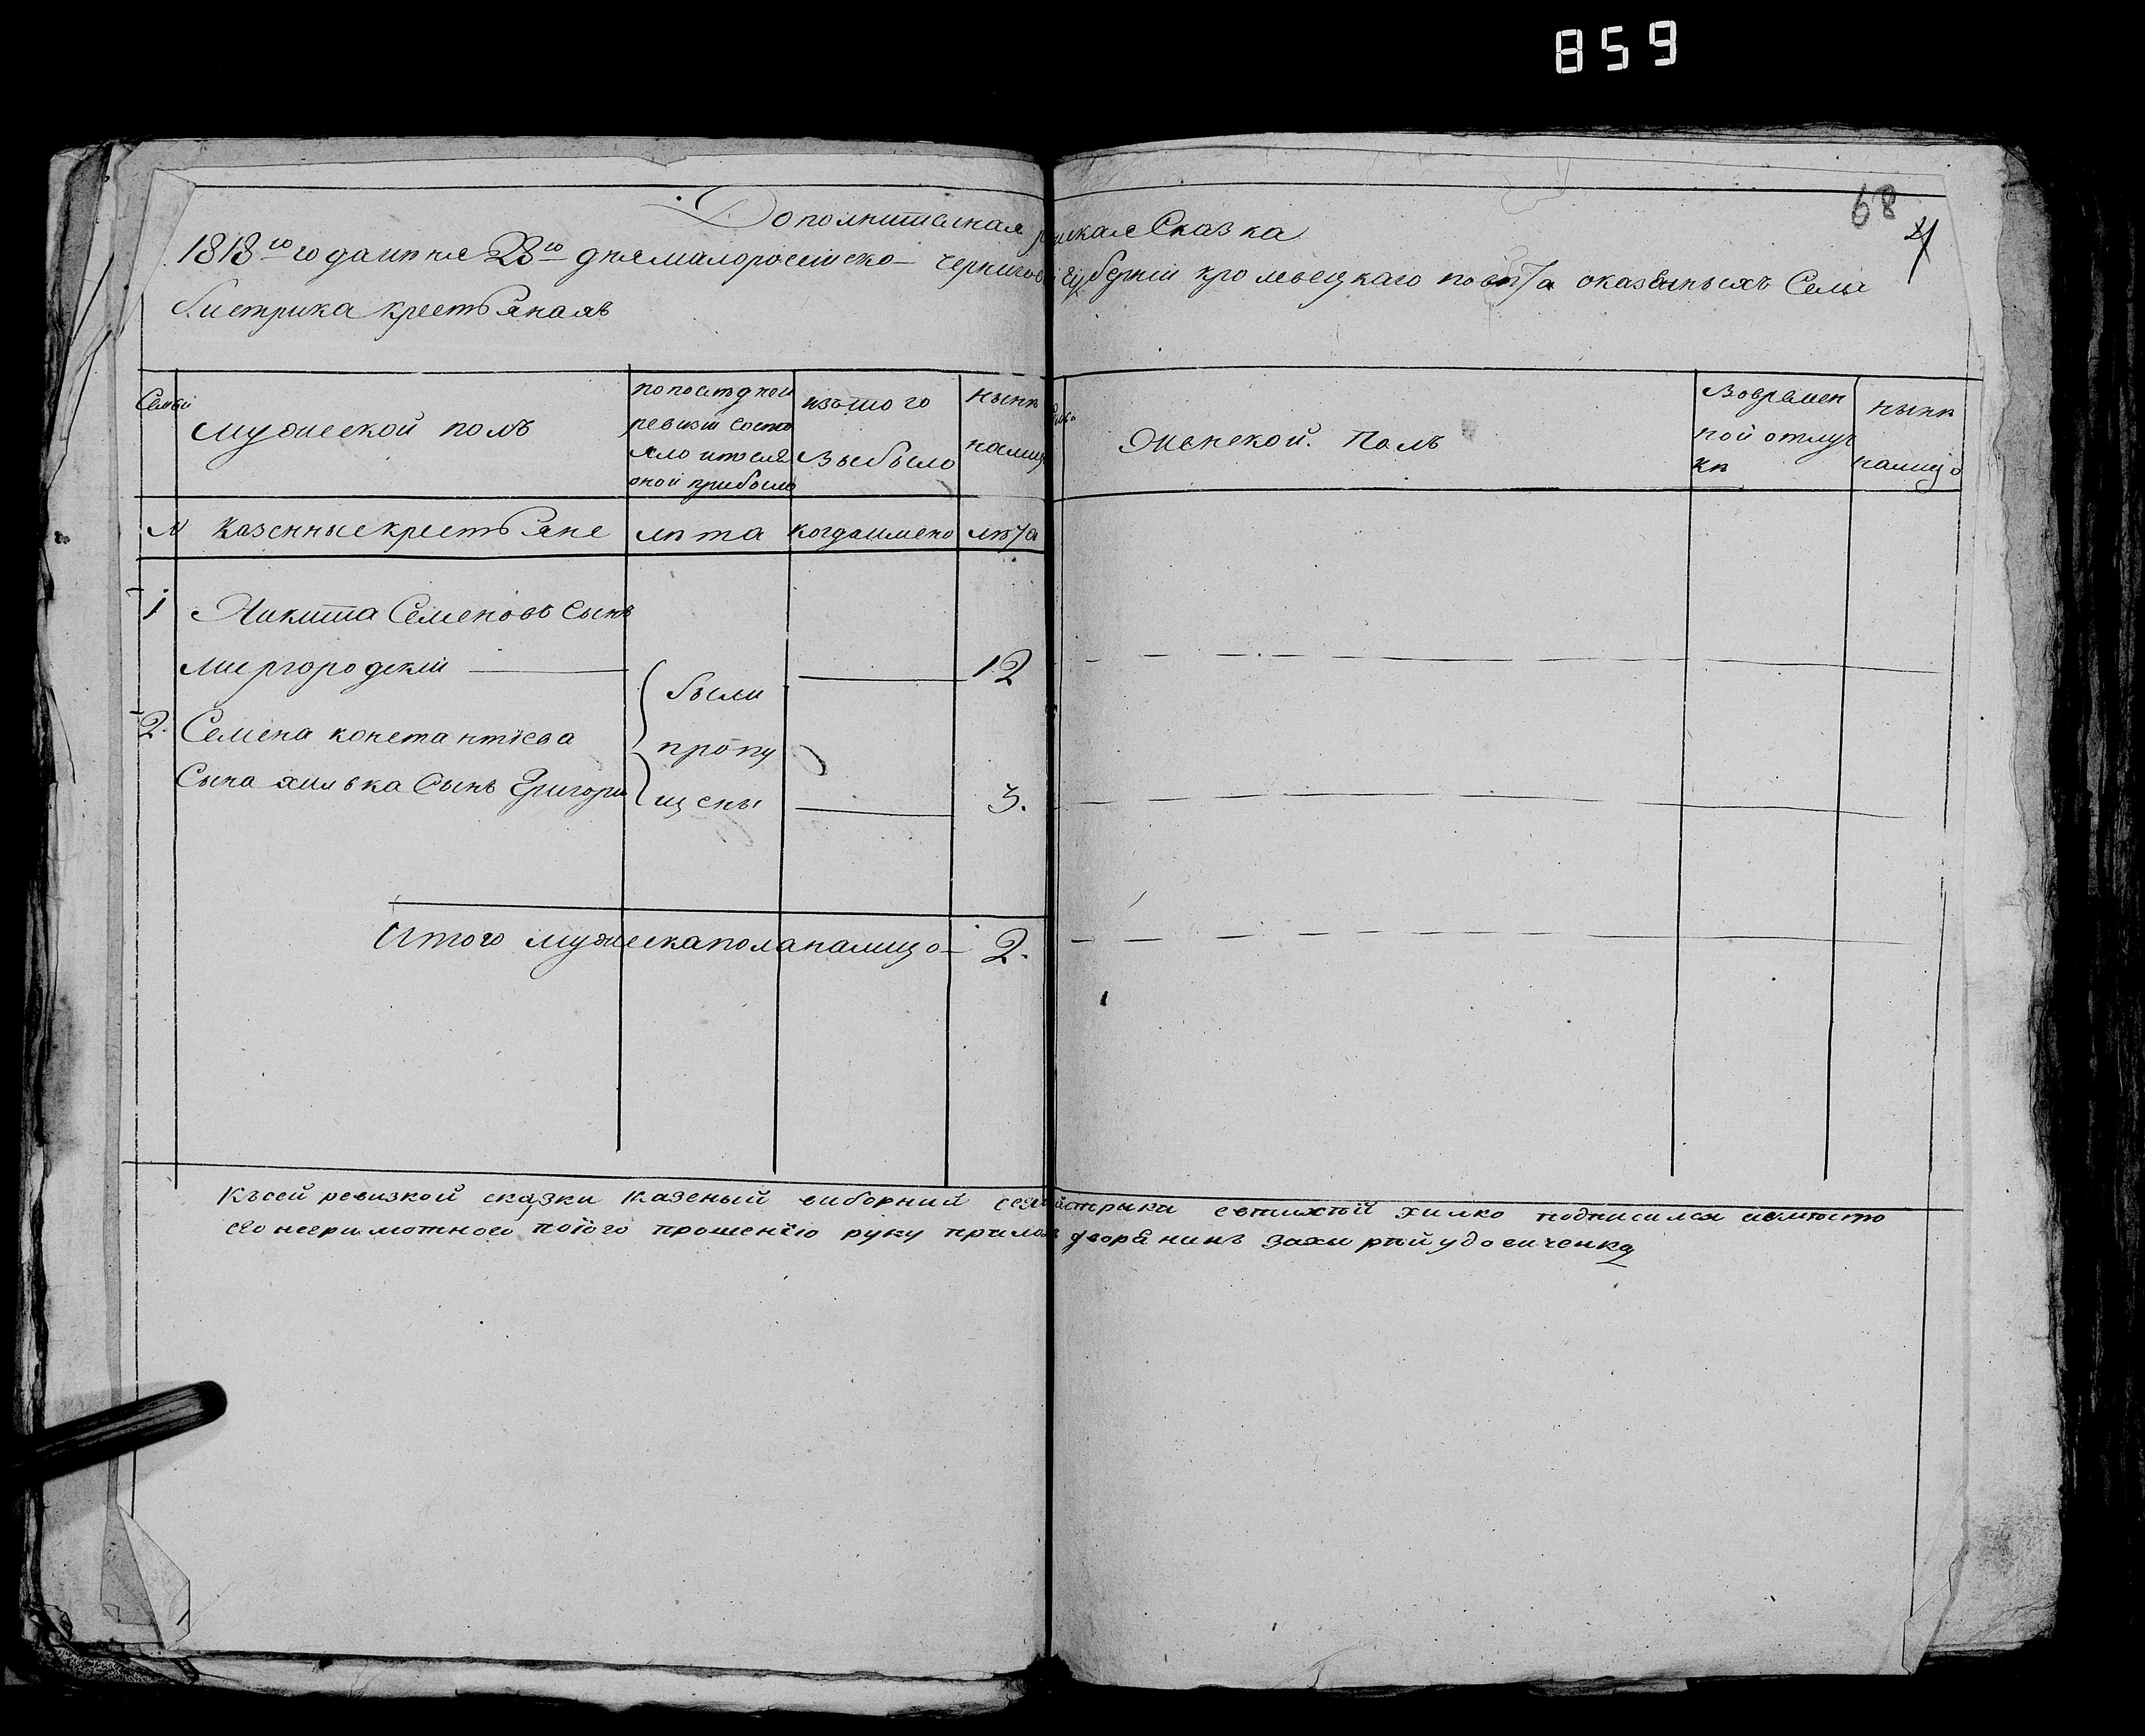 859
68
4
Дополнителная ская Сказка
1818го года июня 23го дня малоросийско- чернигов губернии кролевецкаго повѣта оказеныхъ Села
бистрика крестьянахъ
Семьи
мужеской полъ
по последней
ревизи состо
яло и после
оной прибыло
изъ того
выбыло
нынѣ
налицо
Женской. Полъ
Вовремен
ной отлуч
кѣ
нынѣ
налицо
N казенные крестьяне лѣта когда имено лѣта
1 Никита Семеновъ Сынъ
миргородскій 12
2. Семена константіева
Сына хилька Сынъ Григори 3.
были
пропу
щены
Итого мужеска пола налицо- 2.
Къ сей ревизкой сказки казеный виборний села стрыки евтихѣй хилко подписался авместо
его неграмотного поiого прошенiю руку прилож дворянинъ захарѣй удовиченко